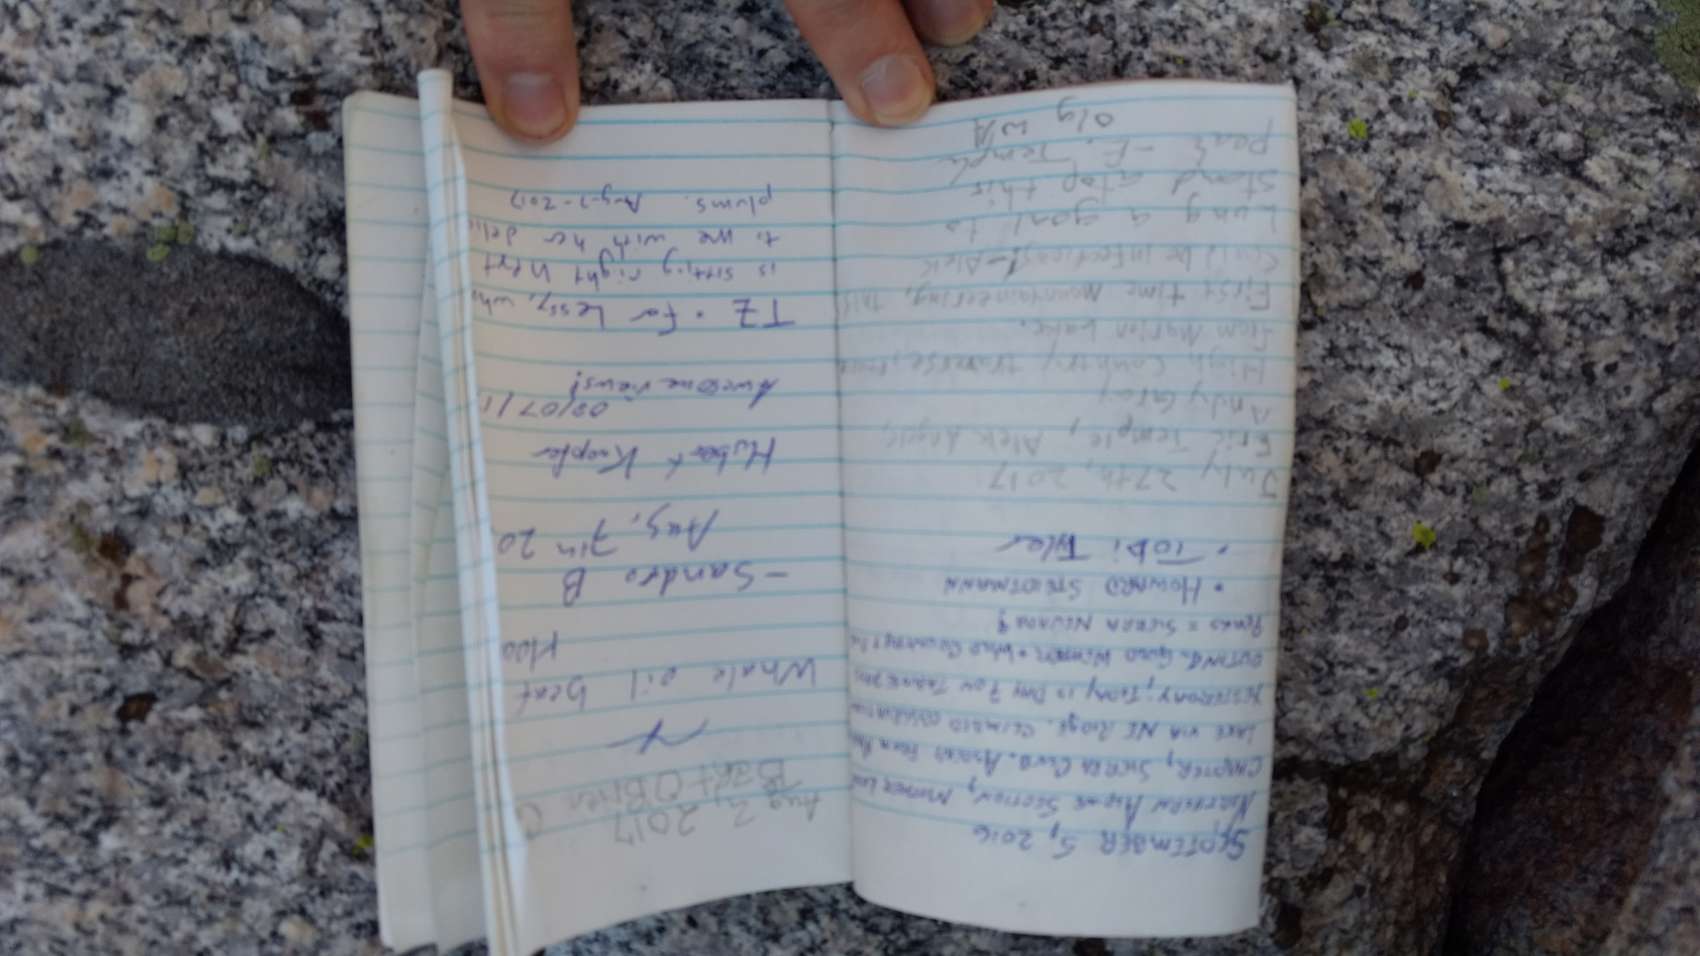 SEPTEMBER 5, 2016
NORTHERN ALPINE SECTION, MOTHER LODE
CHAPTER, SIERRA CLUB. ASCENT FROM
LAKE VIA NE RIDGE. CLIMBED OBSERVATION
YESTERDAY; TODAY IS DAY 7 OF
OUTING. GOOD WEATHER + WILD COUNTRY!
PEAKS = SIERRA NEVADA!
• HOWARD STEIDTMANN
• TOBI Tyler
July 27th, 2017
Eric Temple, Alek
Andy
High Country traverse,
from Marion Lake.
First time mountaineering, this
could be infectious! - Alek
Long a goal to
stand atop this
peak - E. Temple
Oly WA
Aug 2, 2017
Bart O'Brien
Whale oil beef
Hoo
- Sandro B
Aug, 7th 20
Hubert Knepfer
08/07/1
Awesome views!
TZ • For Lessy, who
is sitting right next
to me with her deli
plums. Aug-7-2017